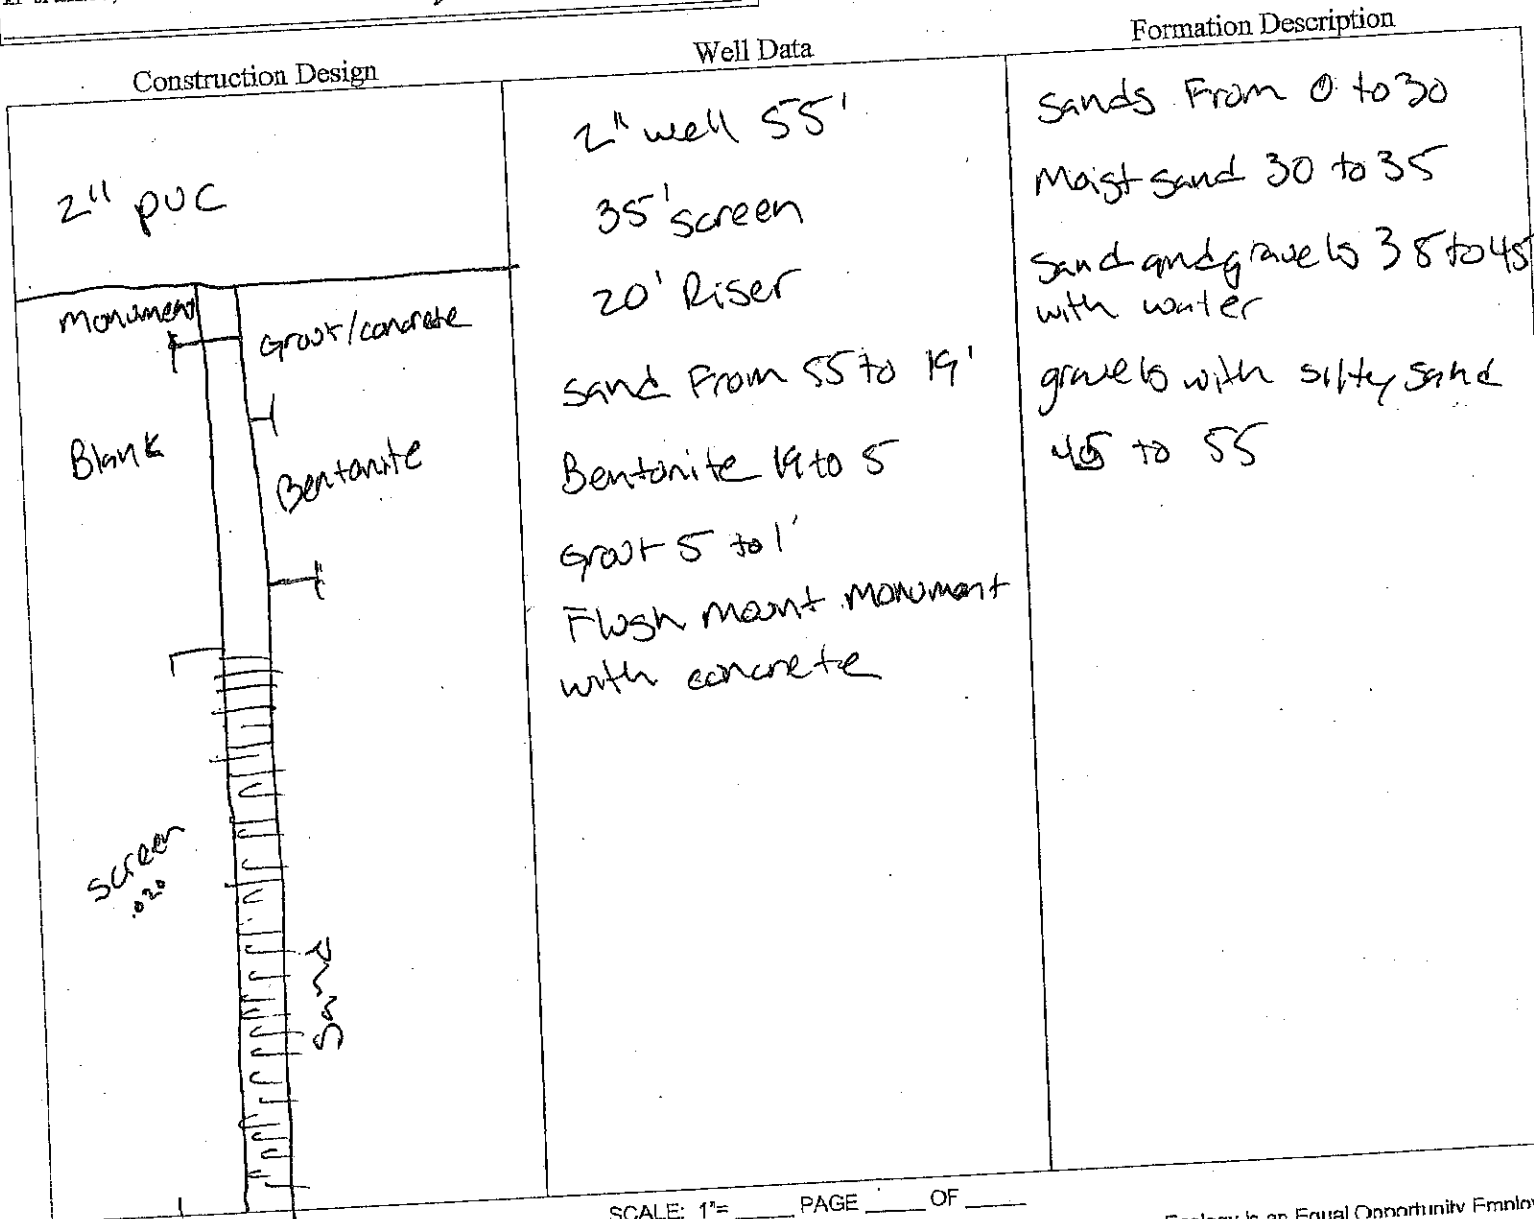 Construction Design
Well Data
Formation Description
2" PVC
Monument
Grout/concrete
Blank
Bentonite
screen
.020
Sand
2" well 55'
35' screen
20' Riser
sand From 55 to 19'
Bentonite 19 to 5
Grout 5 to 1'
Flush mount monument
with concrete
Sands From 0 to 30
Moist sand 30 to 35
Sand and gravels 35 to 45
with water
gravels with silty sand
45 to 55
SCALE: 1"= ____ PAGE ____ OF ____
Ecology is an Equal Opportunity Employ